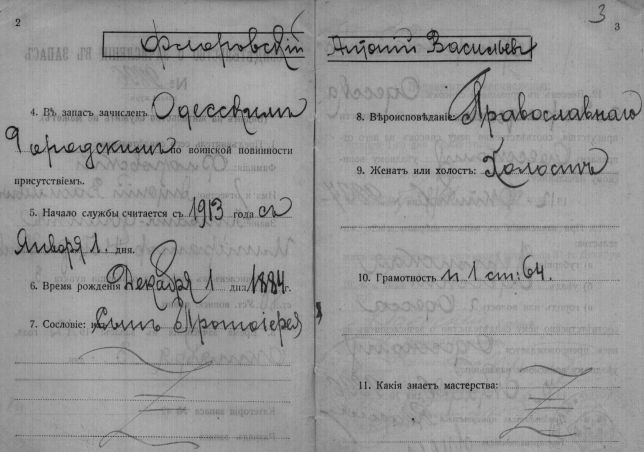 2
Флоровскій
4. Въ запасъ зачисленъ Одесскимъ
Городскимъ по воинской повинности
присутствіемъ.
5. Начало службы считается съ 1913 года съ
Января 1. дня.
6. Время рожденія Декабря 1 дня 1884 г.
7. Сословіе: изъ Сынъ Протоіерея
3
3
Антоній Васильев
8. Вѣроисповѣданіе: Православнаго
9. Женатъ или холостъ: Холостъ
10. Грамотность п 1 ст. 64.
11. Какія знаетъ мастерства: